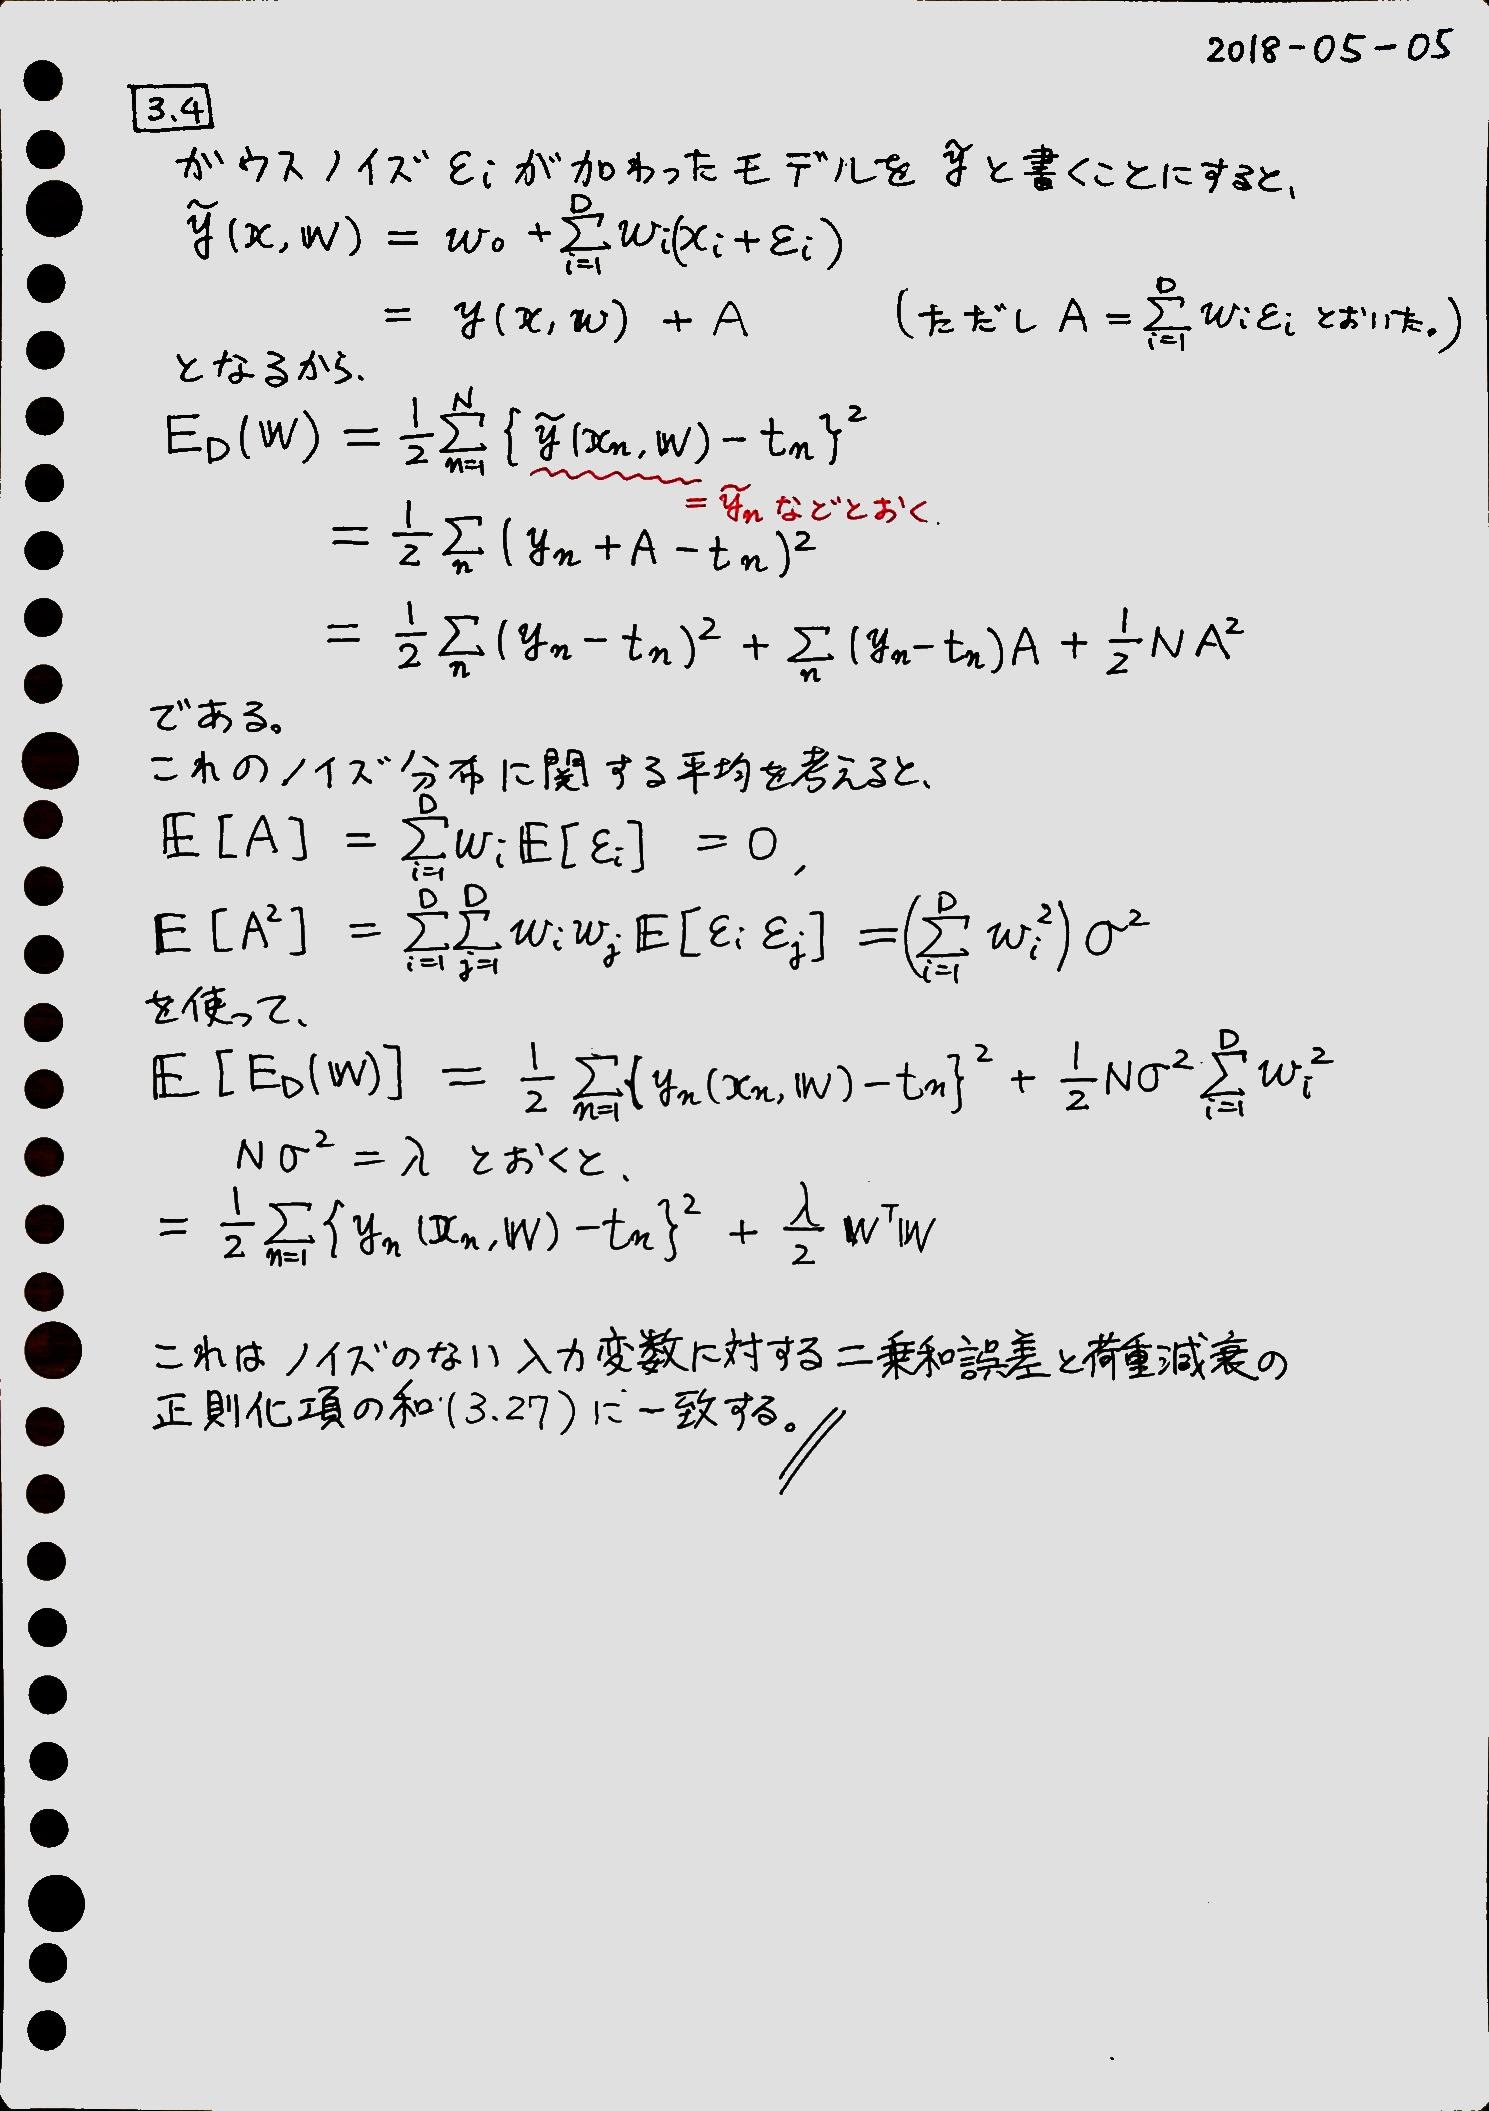 2018-05-05
3.4
ガウスノイズ εi が加わったモデルを ỹ と書くことにすると、
ỹ(x, w) = w₀ + Σ_{i=1}^{D} wi(xi + εi)
= y(x, w) + A (ただし A = Σ_{i=1}^{D} wi εi とおいた。)
となるから、
E_D(w) = 1/2 Σ_{n=1}^{N} { ỹ(xn, w) - tn }²
= ỹn などとおく.
= 1/2 Σ_n (yn + A - tn)²
= 1/2 Σ_n (yn - tn)² + Σ_n (yn - tn)A + 1/2 N A²
である。
これのノイズ分布に関する平均を考えると、
𝔼[A] = Σ_{i=1}^{D} wi 𝔼[εi] = 0,
𝔼[A²] = Σ_{i=1}^{D} Σ_{j=1}^{D} wi wj 𝔼[εi εj] = (Σ_{i=1}^{D} wi²) σ²
を使って、
𝔼[E_D(w)] = 1/2 Σ_{n=1} { yn(xn, w) - tn }² + 1/2 Nσ² Σ_{i=1}^{D} wi²
Nσ² = λ とおくと、
= 1/2 Σ_{n=1} { yn(xn, w) - tn }² + λ/2 wᵀw
これはノイズのない入力変数に対する二乗和誤差と荷重減衰の
正則化項の和 (3.27) に一致する。//